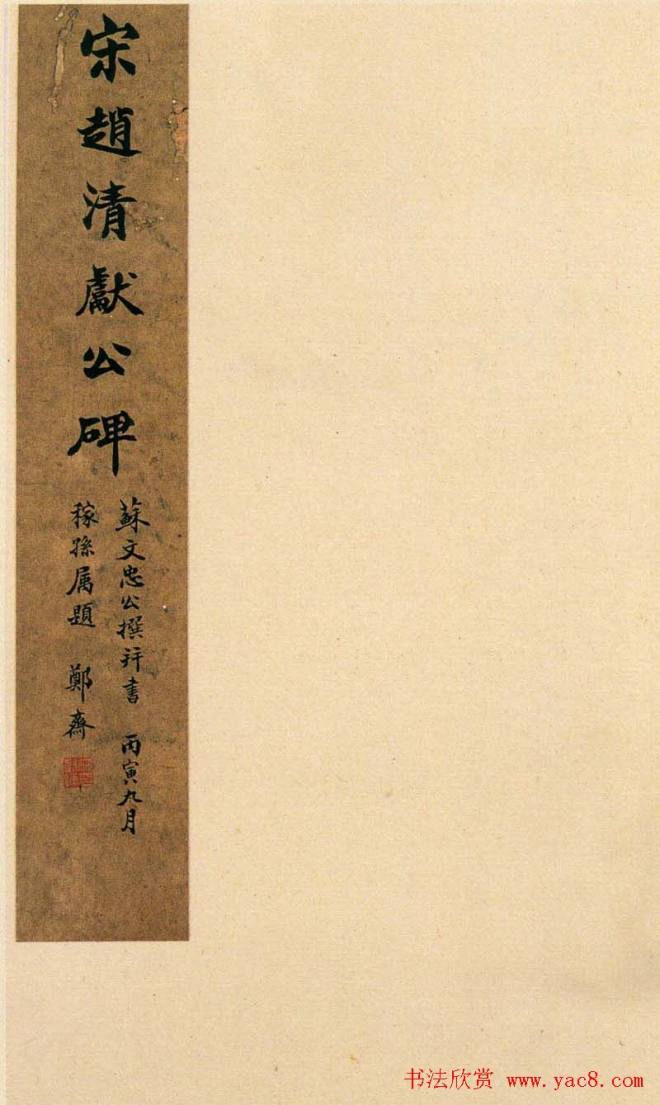 宋趙清獻公碑
蘇文忠公撰并書 丙寅九月
稼孫属題 鄭齋
书法欣赏 www.yac8.com